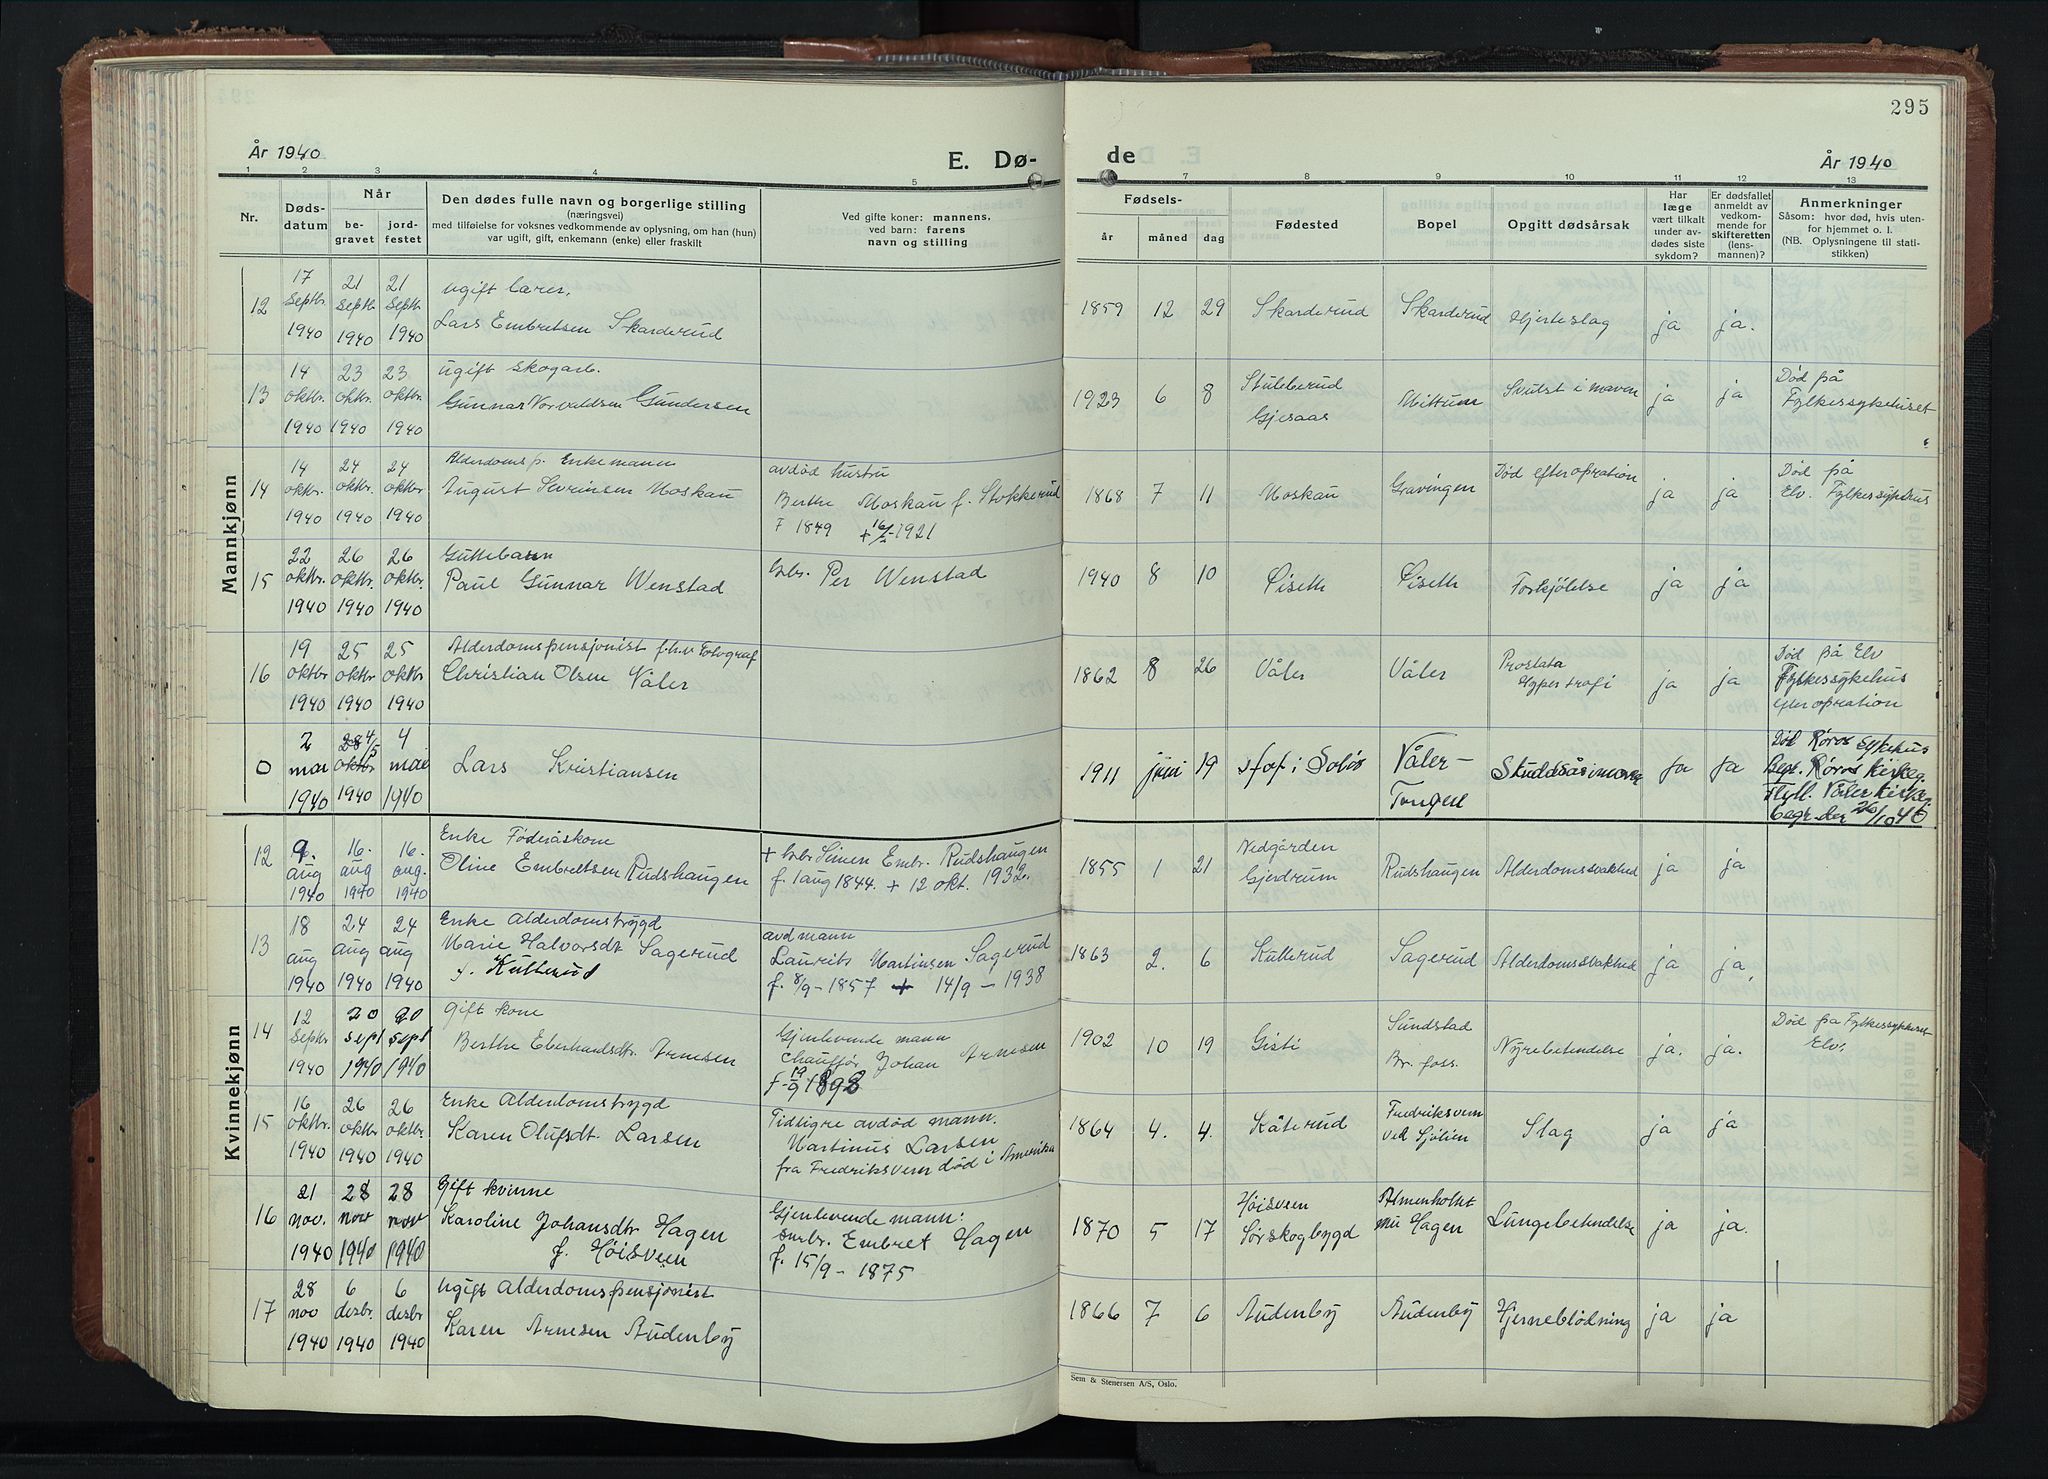 295
År 1940
E. Dø-
de
År 1940
1 2 3 4 5 7 8 9 10 11 12 13
Nr.
Døds-
datum
Når
be-
gravet
jord-
festet
Den dødes fulle navn og borgerlige stilling
(næringsvei)
med tilføielse for voksnes vedkommende av oplysning, om han (hun)
var ugift, gift, enkemann (enke) eller fraskilt
Ved gifte koner: mannens,
ved barn: farens
navn og stilling
Fødsels-
år måned dag
Fødested
Bopel
Opgitt dødsårsak
Har
læge
vært tilkalt
under av-
dødes siste
sykdom?
Er dødsfallet
anmeldt av
vedkom-
mende for
skifteretten
(lens-
mannen)?
Anmerkninger
Såsom: hvor død, hvis uten-
for hjemmet o. l.
(NB. Oplysningene til stati-
stikken)
Mannkjønn
12
17 septbr. 1940
21 septbr 1940
21 septbr 1940
ugift lærer,
Lars Embretsen Skarderud
1859 12 29 Skarderud Skarderud Hjerteslag ja ja.
13
14 oktbr. 1940
23 oktbr. 1940
23 oktbr. 1940
ugift skogarb.
Gunnar Norvaldsen Gundersen
1923 6 8
Stubberud
Gjesaas
Mittum
Svulst i maven
ja ja
Død på
Fylkessykehuset
14
14 oktbr. 1940
24 oktbr. 1940
24 oktbr 1940
Alderdomsp. Enkemann
August Sevrinsen Moskau
avdød hustru
Berthe Moskau f. Stokkerud
F 1849 + 1921
1868 7 11 Moskau Gravingen Død efter opration ja ja
Død på
Elv. Fylkessykehus
15
22 oktbr. 1940
26 oktbr. 1940
26 oktbr. 1940
Guttebarn
Paul Gunnar Wenstad
Per Wenstad
1940 8 10 Piseth Piseth Forkjølelse ja ja
16
19 oktbr 1940
25 oktbr 1940
25 oktbr 1940
Alderdomspensjonist f.h.v Fotograf
Christian Olsen Våler
1862 8 26 Våler Våler
Prostata
Hypertrofi
ja ja
Død på Elv
Fylkessykehus
efter opration
0
2 mai 1940
28 oktbr 4/5 1940
4 mai 1940
Lars Kristiansen
1911 juni 19
Hof i Solør
Våler-
Tongen
Skuddsår i maven
ja ja
Død Røros sykehus
Begr. Røros kirkeg.
Flytt. Våler kirkeg
begr. den 26/10 40
Kvinnekjønn
12
9. aug 1940
16. aug 1940
16. aug. 1940
Enke Føderåskone
Oline Embretsen Rudshaugen
+ Simen Embr. Rudshaugen
f. 1 aug 1844. + 12 okt. 1932.
1855 1 21
Nedgården
Gjerdrum
Rudshaugen Alderdomssvakhed ja ja
13
18 aug 1940
24 aug 1940
24 aug 1940
Enke Alderdomstrygd
Marie Halvorsdt Sagerud
f. Kulterud
avd mann
Laurits Martinsen Sagerud
f. 8/9 - 1857 + 14/9 - 1938
1863 2. 6 Kulterud Sagerud Alderdomssvakhed ja ja,
14
12 septbr 1940
20 sept 1940
20 sept 1940
Gift kone
Berthe Eberhardsdtr Arnesen
Gjenlevende mann
Chauffør Johan Arnesen
f 19/9 1898
1902 10 19 Gisti
Sundstad
Br. foss.
Nyrebetendelse ja. ja.
Død på Fylkessykehuset
Elv.
15
16 oktbr. 1940
26 oktbr 1940
26 oktbr. 1940
Enke Alderdomstrygd
Karen Olufsdt. Larsen
Tidligre avdød mann.
Martinus Larsen
fra Fredriksveen død i Amerika
1864 4. 4. Kåterud
Fredriksveen
ved Sjølien
Slag ja ja
16
21 nov. 1940
28 nov 1940
28 nov 1940
Gift kvinne
Karoline Johansdtr Hagen
f. Høisveen
Gjenlevende mann:
smbr. Embret Hagen
f. 15/9 - 1875
1870 5 17
Høisveen
Sørskogbygd
Almenholtet
nu Hagen
Lungebetendelse ja ja.
17
28 nov 1940
6 desbr. 1940
6 desbr. 1940
Ugift Alderdomspensjonist
Karen Arnesen Audenby
1866 7 6 Audenby Audenby Hjerneblødning ja ja
Sem & Stenersen A/S, Oslo.